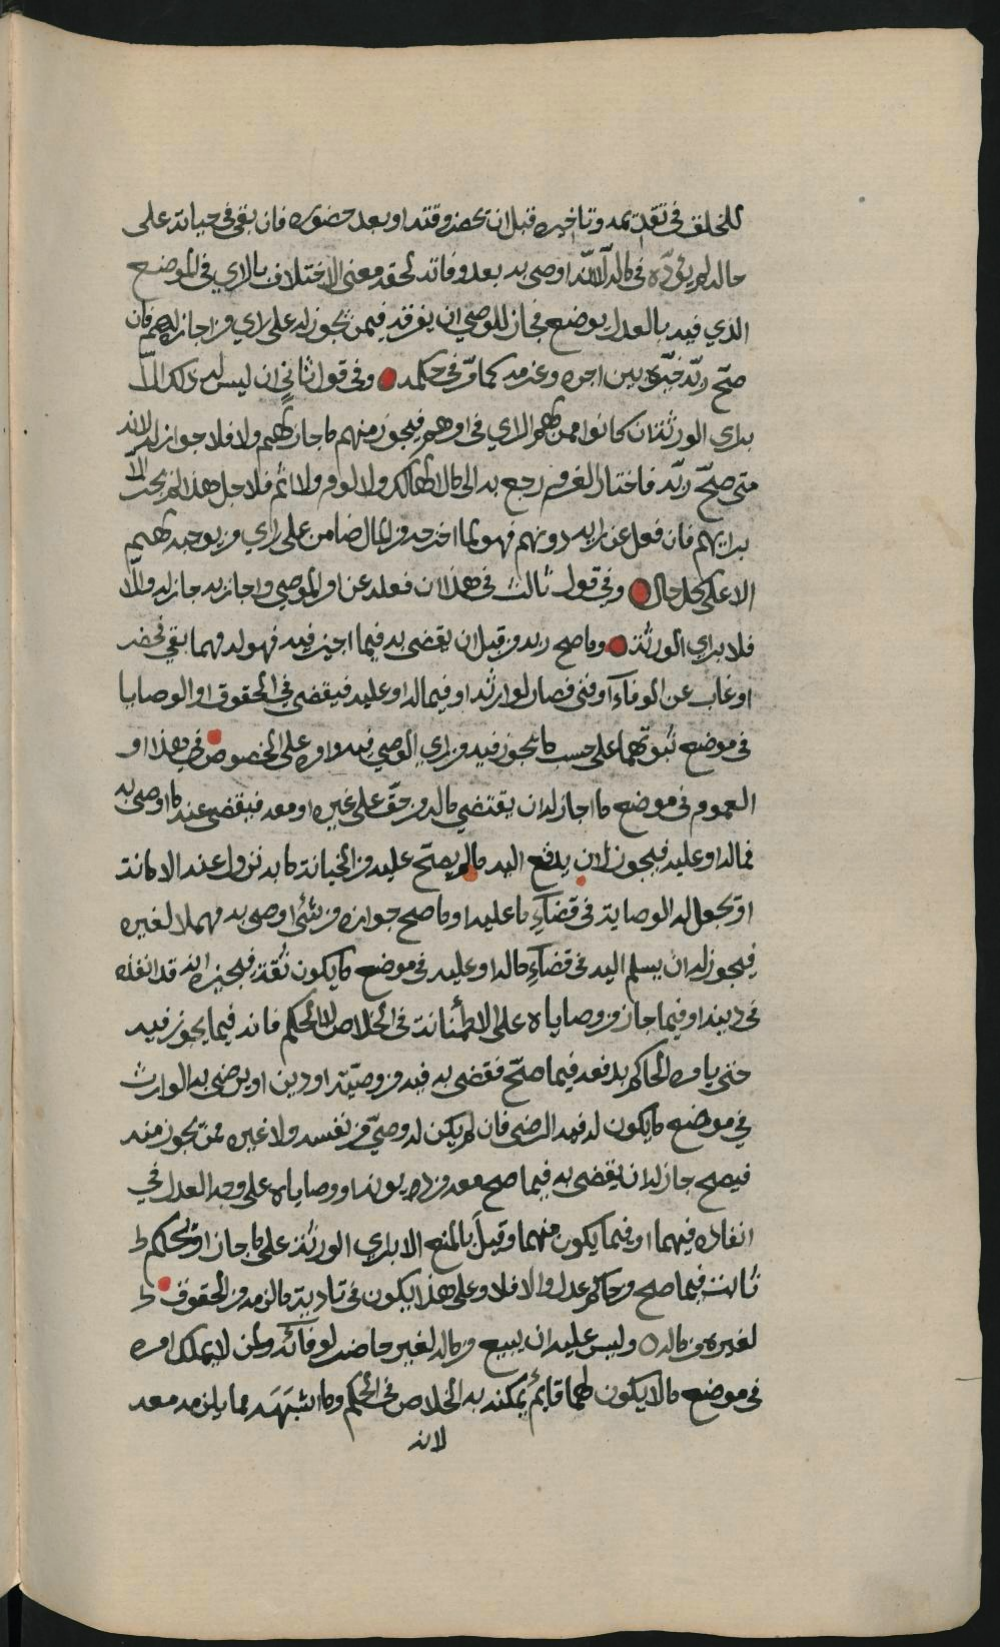 للخلق في تقديمه وتاخيره قبل ان يحضر وقته او بعد حضوره فان بقي في حياته على
حاله لم يؤدّه في ماله الا انه اوصى به بعد وفاته لحقه معنى الاختلاف بالراي في الموضع
الذي فيه بالعدل يوضع فجاز للوصي ان يفرقه فيمن يجوز له على راي من اجازه لهم فان
صحّ ربّه خيّره بين اجره وغرمه كما مرّ في حكمه وفي قول ثانٍ ان ليس له ذلك الاّ
براي الورثة ان كانوا ممن لهم الراي في امرهم فيجوز منهم ما جاز لهم ولا فلا جواز له لانه
متى صحّ ربّه فاختار الغرم رجع به الى مال الهالك ولا لوم ولا اثم فلاجل هذا لم يجز الاّ
برايهم فان فعل عن رايه دونهم فهو لما اخرجه من المال ضامن على راي من يوجبه لهم
الا على كل حال وفي قول ثالث في هذا ان فعله عن امر الموصي واجازه به جاز له والاّ
فلا براي الورثة وما صح ربه من قبل ان يقضى به فيما اجيز فيه فهو له مهما بقي فحضر
او غاب عن الوفاء او فنى فصار لوارثه او فيما له او عليه فيقضي في الحقوق او الوصايا
في موضع ثبوتهما على حسب ما يجوز فيه من راي الوصي فيه وامره على الخصوص في هذا او
العموم في موضع ما اجاز له ان يقتضي ماله من حقّ على غيره او معه فيقضي عنه ما اوصى به
فماله او عليه فيجوز لان يدفع اليه ما لم يصح عليه من الخيانة ما به نزول عند الامانة
او تجعل له الوصاية في قضاءِ ما عليه او ما صح جوازه من شئ اوصى به مهملا لغيره
فيجوز له ان يسلم اليه في قضاءِ ماله او عليه في موضع ما يكون ثقة فيجيزه انه قد انفذه
في دينه او فيما جاز من وصاياه على الاطمئنانة في الخلاص لا الحكم فانه فيما يجوز فيه
حتى يامره الحاكم بدفعه فيما صحّ فقضى به فيه من وصيّته او دين او يرضى به الوارث
في موضع ما يكون له فيه الرضى فان لم يكن له وصيّ من نفسه ولا غيره ممّن يجوز منه
فيصح جاز له ان يقضى به فيما صح معه من ديونه او وصاياه على وجه العدل في
انفاذه فيهما او فيما يكون منهما وقيل بالمنع الا براي الورثة على ما جاز او بحكم
ثابت فيما صح من حاكم عدل والا فلا وعلى هذا يكون في تادية ما لزمه من الحقوق
لغيره من ماله وليس عليه ان يبيع من ماله لغير حاضر لوفائه ولمن لا يملك امره
في موضع ما لا يكون لهما قايم يمكنه به الخلاص في الحكم وما اشبهه مما يلزمه معه
لانه